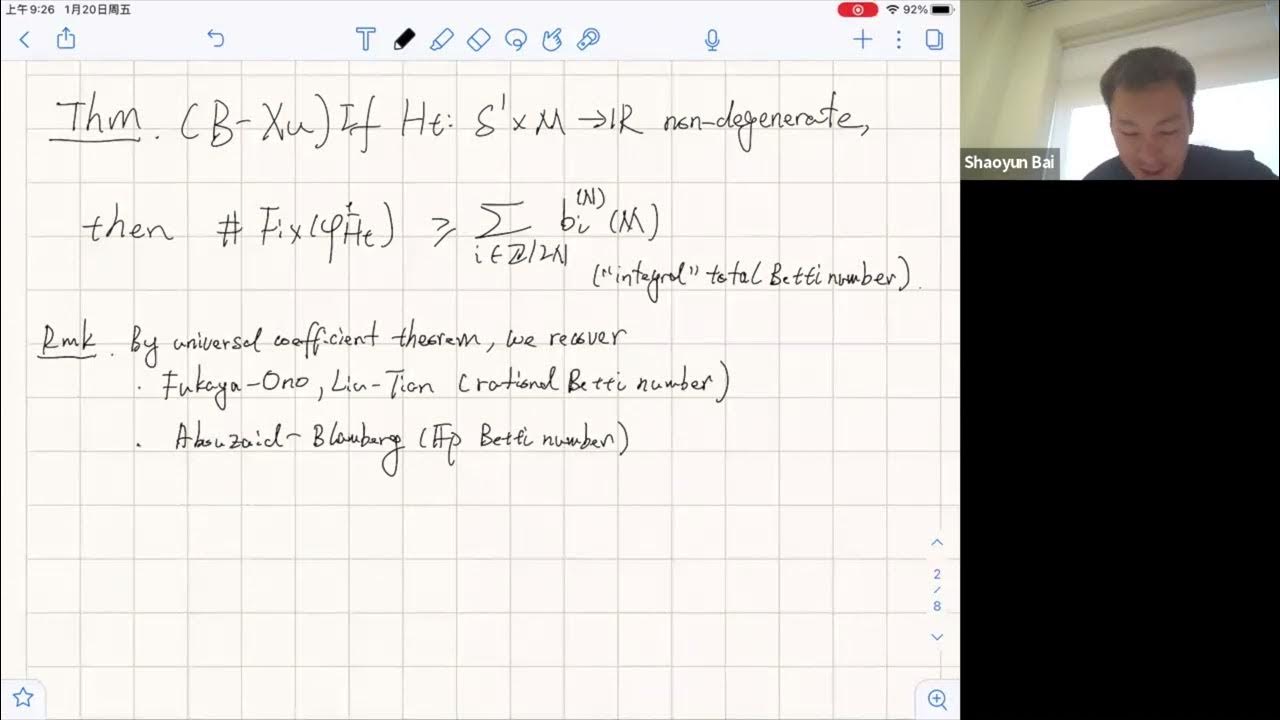 上午9:26 1月20日周五
92%
Thm. (B-Xu) If Ht: S¹×M→IR non-degenerate,
then # Fix(φ¹Ht) ≥ Σ i∈ℤ/2N bi⁽ᴺ⁾(M)
("integral" total Betti number).
Rmk. By universal coefficient theorem, we recover
· Fukaya-Ono, Liu-Tian (rational Betti number)
· Abouzaid-Blumberg (𝔽p Betti number)
2
/
8
Shaoyun Bai